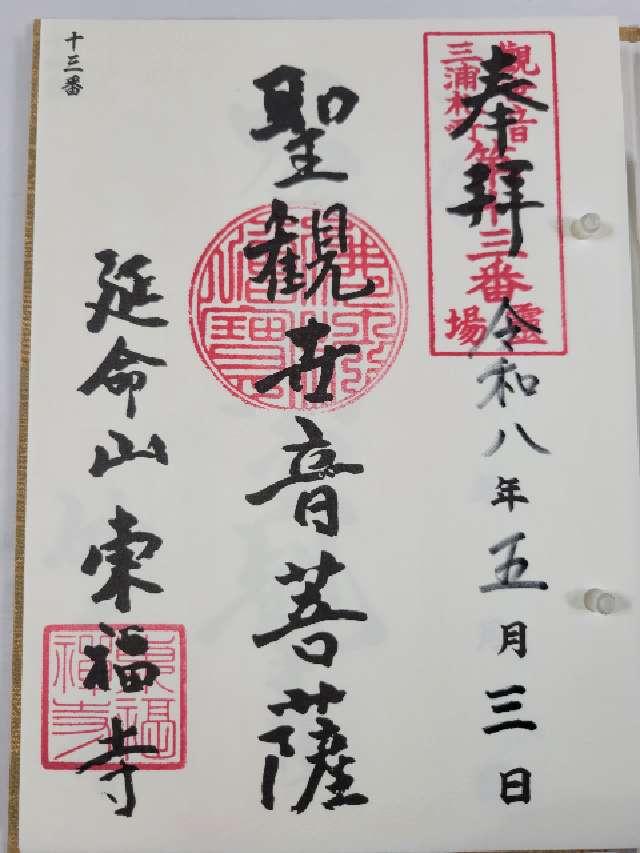 奉拝
令和八年五月三日
觀世音
三浦札所第十三番霊場
聖観世音菩薩
佛法僧寶
延命山東福寺
東福禅寺
十三番